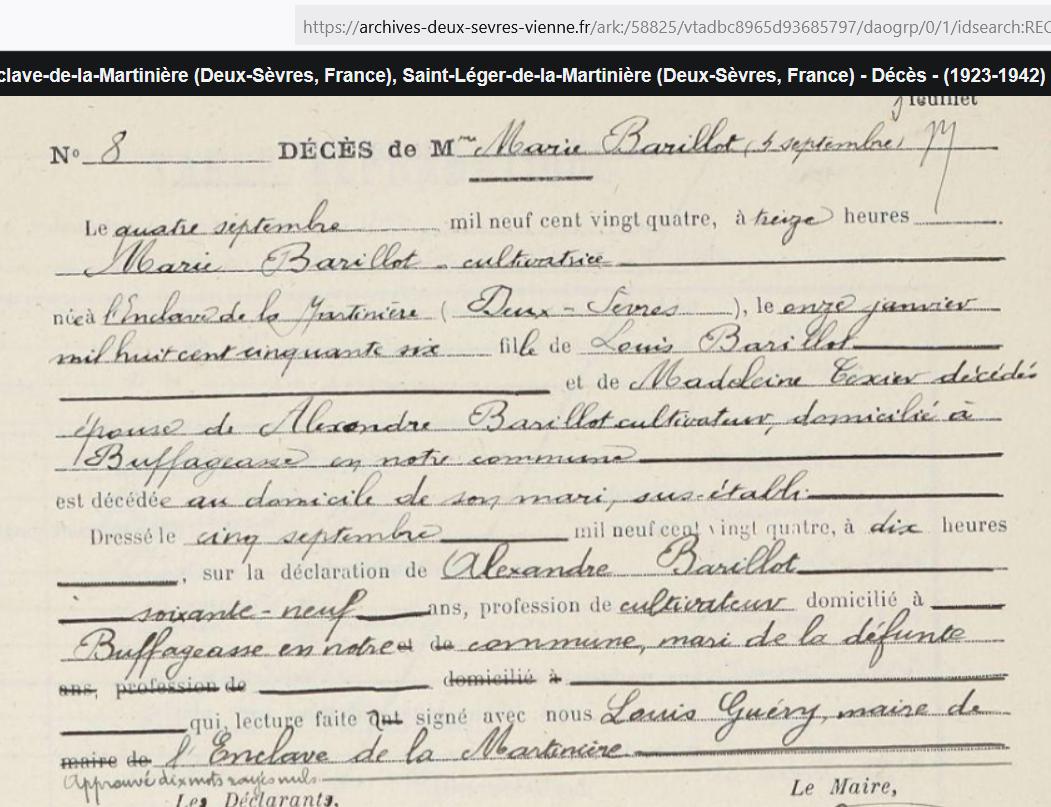 https://archives-deux-sevres-vienne.fr/ark:/58825/vtadbc8965d93685797/daogrp/0/1/idsearch:REC
clave-de-la-Martinière (Deux-Sèvres, France), Saint-Léger-de-la-Martinière (Deux-Sèvres, France) - Décès - (1923-1942)
feuillet
No 8 DÉCÈS de Mme Marie Barillot (4 septembre)
Le quatre septembre mil neuf cent vingt quatre, à treize heures
Marie Barillot cultivatrice
née à l'Enclave de la Martinière (Deux-Sèvres), le onze janvier
mil huit cent cinquante six fille de Louis Barillot
et de Madeleine Texier décédés
épouse de Alexandre Barillot cultivateur, domicilié à
Buffageasse en notre commune
est décédée au domicile de son mari, sus-établi.
Dressé le cinq septembre mil neuf cent vingt quatre, à dix heures
, sur la déclaration de Alexandre Barillot
soixante-neuf ans, profession de cultivateur domicilié à
Buffageasse en notre et de commune, mari de la défunte
ans, profession de domicilié à
qui, lecture faite ont signé avec nous Louis Guéry, maire de
maire de l'Enclave de la Martinière
Approuvé dix mots rayés nuls.
Les Déclarants, Le Maire,